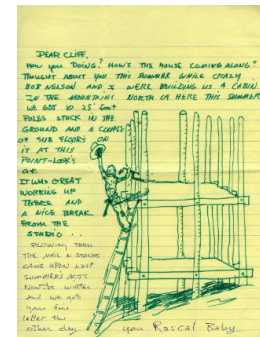 DEAR CLIFF,
HOW YOU DOING? HOW'S THE HOUSE COMING ALONG?
THOUGHT ABOUT YOU THIS SUMMER WHILE CRAZY
BOB NELSON AND I WERE BUILDING US A CABIN
IN THE MOUNTAINS NORTH OF HERE THIS SUMMER
WE GOT 10 25' foot
POLES STUCK IN THE
GROUND AND A COUPLE
OF SUB FLOORS ON
IT AT THIS
POINT - LOOKS
O.K.
IT WAS GREAT
WORKING UP
THERE AND
A NICE BREAK
FROM THE
STUDIO . .
THRU
THE MAIL IN STACKS
CAME UPON LAST
SUMMERS
written
And we got
your fine
letter the
other day
your Rascal